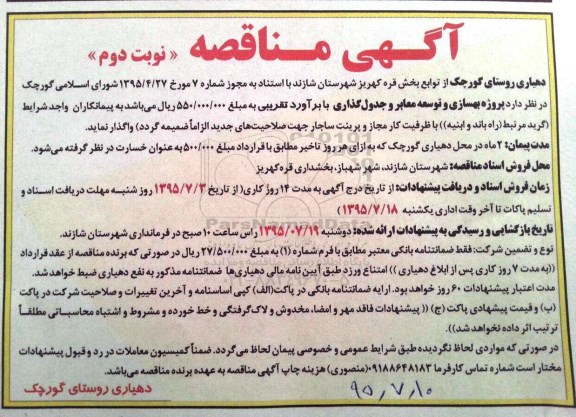 آگـهی مـنـاقصه « نوبت دوم »
دهیاری روستای گورچک از توابع بخش قره کهریز شهرستان شازند با استناد به مجوز شماره ۷ مورخ ۱۳۹۵/۴/۲۷ شورای اسلامی گورچک
در نظر دارد پروژه بهسازی و توسعه معابر و جدول‌گذاری با برآورد تقریبی به مبلغ ۵۵۰/۰۰۰/۰۰۰ ریال می‌باشد به پیمانکاران واجد شرایط
(گرید مرتبط (راه باند و ابنیه)) با ظرفیت کار مجاز و پرینت ساجار جهت صلاحیت‌های جدید الزاماً ضمیمه گردد) واگذار نماید.
مدت پیمان: ۲ ماه در محل دهیاری گورچک که به ازای هر روز تاخیر مطابق با قرارداد مبلغ ۵۰۰/۰۰۰ به عنوان خسارت در نظر گرفته می‌شود.
محل فروش اسناد مناقصه: شهرستان شازند، شهر شهباز، بخشداری قره‌کهریز
زمان فروش اسناد و دریافت پیشنهادات: از تاریخ درج آگهی به مدت ۱۴ روز کاری( از تاریخ ۱۳۹۵/۷/۳ روز شنبه مهلت دریافت اسناد و
تسلیم پاکات تا آخر وقت اداری یکشنبه ۱۳۹۵/۷/۱۸)
تاریخ بازگشایی و رسیدگی به پیشنهادات ارائه شده: دوشنبه ۱۳۹۵/۰۷/۱۹ راس ساعت ۱۰ صبح در فرمانداری شهرستان شازند.
نوع و تضمین شرکت: فقط ضمانتنامه بانکی معتبر مطابق با فرم شماره (۱) به مبلغ ۲۷/۵۰۰/۰۰۰ ریال در صورتی که برنده مناقصه از عقد قرارداد
((به مدت ۷ روز کاری پس از ابلاغ دهیاری )) امتناع ورزد طبق آیین نامه مالی دهیاری‌ها ضمانتنامه مذکور به نفع دهیاری ضبط خواهد شد.
مدت اعتبار پیشنهادات ۶۰ روز خواهد بود. ارایه ضمانتنامه بانکی در پاکت(الف) کپی اساسنامه و آخرین تغییرات و صلاحیت شرکت در پاکت
(ب) و قیمت پیشهادی پاکت (ج) (( پیشنهادات فاقد مهر و امضا، مخدوش و لاک‌گرفتگی و خط خورده و مشروط و اشتباه محاسباتی مطلقاً
ترتیب اثر داده نخواهد شد)).
در صورتی که مواردی لحاظ نگردیده طبق شرایط عمومی و خصوصی پیمان لحاظ می‌گردد. ضمناً کمیسیون معاملات در رد و قبول پیشنهادات
مختار است شماره تماس کارفرما ۰۹۱۸۸۶۴۸۱۸۳(منصوری) هزینه چاپ آگهی مناقصه به عهده برنده مناقصه می‌باشد.
۹۵,۷,۱۰
دهیاری روستای گورچک